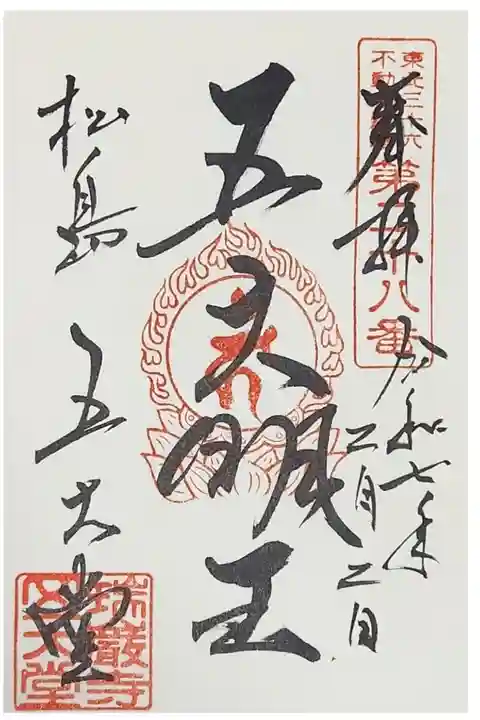 東北三十六
不動
第二十八番
奉拝
令和七年
二月二日
五大明王
松島
五大堂
瑞巌寺
五大堂